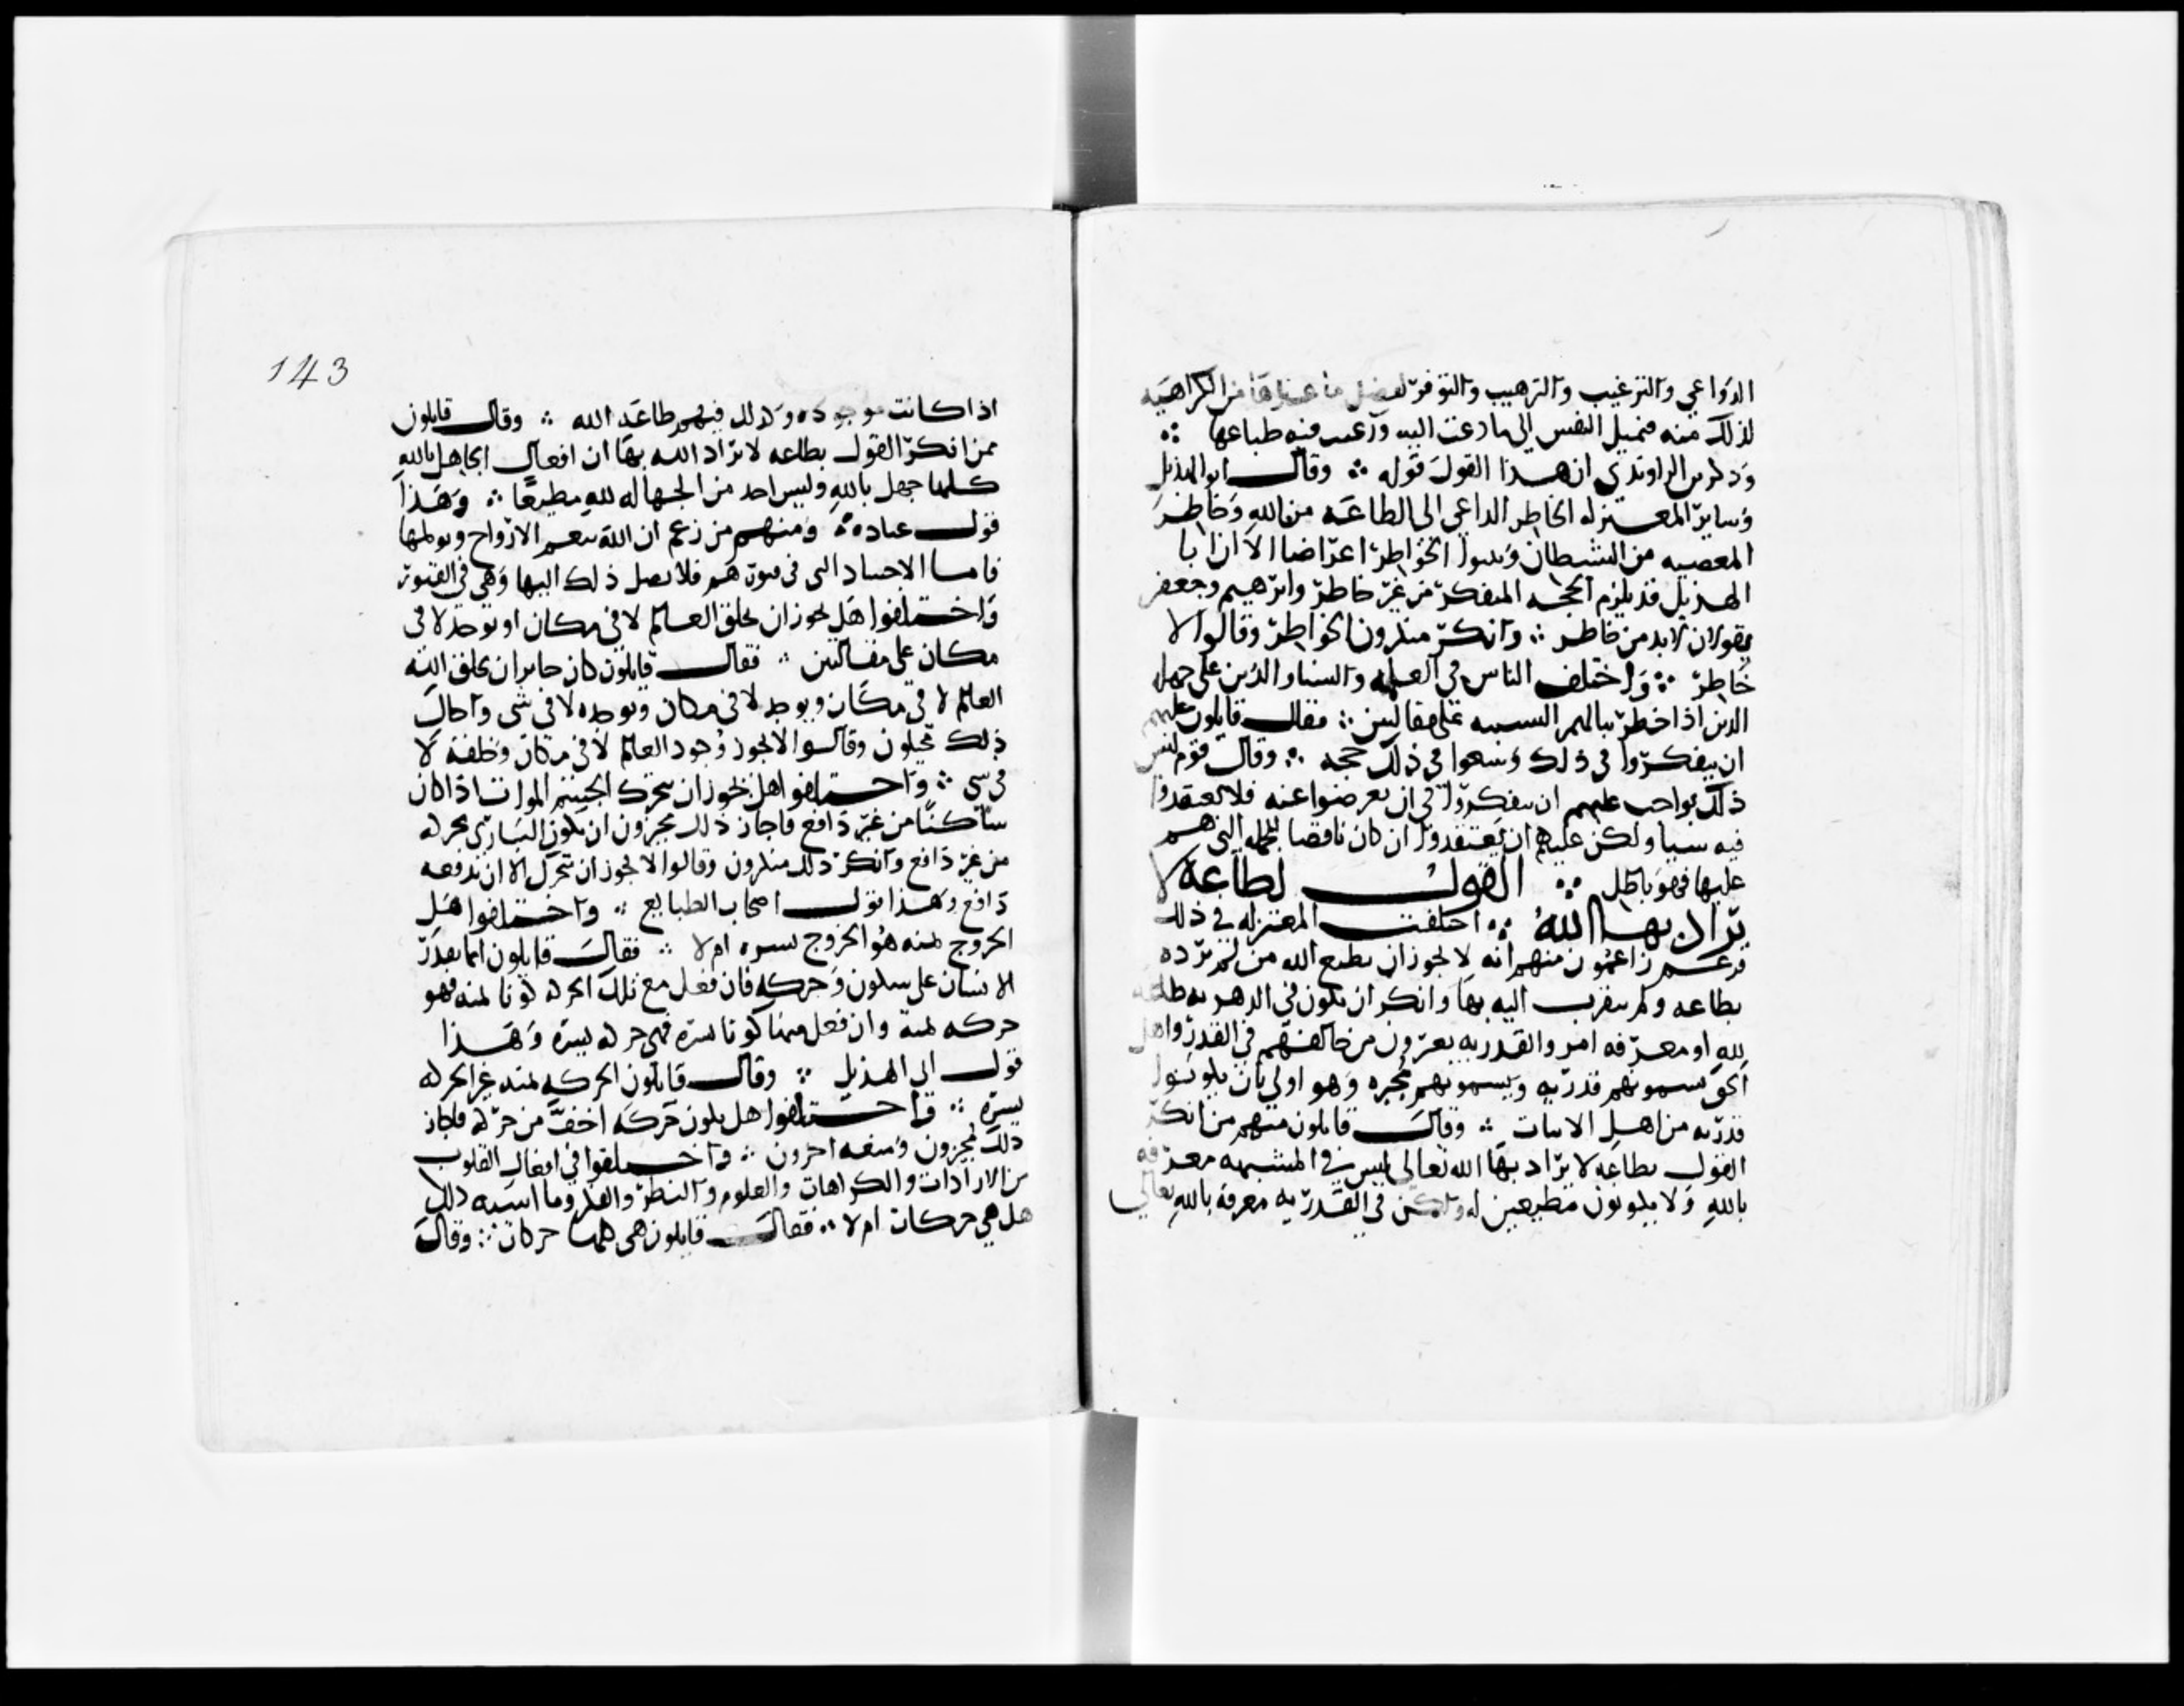 الدواعي والترغيب والترهيب والتوفر ليفضل ما عندها من الكراهية
لذلك منه فتميل النفس الى ما دعت اليه ورغبت فيه طباعها ∴
وذكر بن الراوندى ان هذا القول قوله ∴ وقال ابو الهذيل
وساير المعتزله الخاطر الداعي الى الطاعه من الله وخاطر
المعصيه من الشيطان وثبتوا الخواطر اعراضا الا ان ابا
الهذيل قد يلزم الحجه المتفكر من غير خاطر وابرهيم وجعفر
يقولان لا بد من خاطر ∴ وانكر منكرون الخواطر وقالوا لا
خاطر ∴ واختلف الناس في العامه والنساء والذين على جهل
الدين اذا خطر ببالهم التشبيه على مقالتين ∴ فقال قايلون عليهم
ان يتفكروا في ذلك حجه ∴ وقال قوم ليس
ذلك بواجب عليهم ان يتفكروا في ان يعرضوا عنه فلا يعتقدوا
فيه شيا ولكن عليهم ان يعتقدوا ان كان ناقضا للجمله التي هم
عليها فهو باطل ∴ القول بطاعة لا
يراد بها الله ∴ اختلفت المعتزله في ذلك
فزعم زاعمون منهم انه لا يجوز ان يطيع الله من لم يرده
بطاعه ولم يتقرب اليه بها وانكر ان يكون في الدهريه طاعه
لله او معرفه امر والقدريه يعرون من خالفهم في القدر واهل
الحق يسمونهم قدريه ويسمونهم مجبره وهو اولى بان يكونوا
قدريه من اهل الاثبات ∴ وقال قايلون منهم من انكر
القول بطاعه لا يراد بها الله تعالى ليس في المشبهه معرفه
بالله ولا يكونون مطيعين له ولكن في القدريه معرفة بالله تعالى
143
اذا كانت موجوده وكذلك فيهم طاعه الله ∴ وقال قايلون
ممن انكر القول بطاعه لا يراد الله بها ان افعال الجاهل بالله
كلها جهل بالله وليس احد من الجهاله لله مطيعا ∴ وهذا
قول عباد ∴ ومنهم من زعم ان الله ينعم الارواح ويولمها
فاما الاجساد التي في قبورهم فلا يصل ذلك اليها وهي في القبور
واختلفوا هل يجوز ان يخلق العالم لا في مكان او يوجد لا في
مكان على مقالتين ∴ فقال قايلون كان جايزا ان يخلق الله
العالم لا في مكان ويوجد لا في مكان ويوجده لا في شى واحال
ذلك محيلون وقالوا لا يجوز وجود العالم لا في مكان وخلقه لا
في شي ∴ واختلفوا هل يجوز ان يتحرك الجسم الموات اذا كان
ساكنا من غير دافع فاجاز ذلك مجيزون ان يكون البارى يحركه
من غير دافع وانكر ذلك منكرون وقالوا لا يجوز ان يتحرك الا ان يدفعه
دافع وهذا قول اصحاب الطبايع ∴ واختلفوا هل
الخروج يمنه هو الخروج يسره ام لا ∴ فقال قايلون انما يقدر
الانسان على سكون وحركه فان فعل مع تلك الحركه كونا يمنه فهو
حركه يمنة وان فعل معها كونا يسره فهي حركه يسره وهذا
قول ابي الهذيل ∴ وقال قايلون الحركه يمنه غير الحركه
يسره ∴ واختلفوا هل يكون حركه اخف من حركه فاجاز
ذلك مجيزون ومنعه اخرون ∴ واختلفوا في افعال القلوب
من الارادات والكراهات والعلوم والنظر والفكر وما اشبه ذلك
هل هي حركات ام لا ∴ فقال قايلون هي كلها حركات ∴ وقال